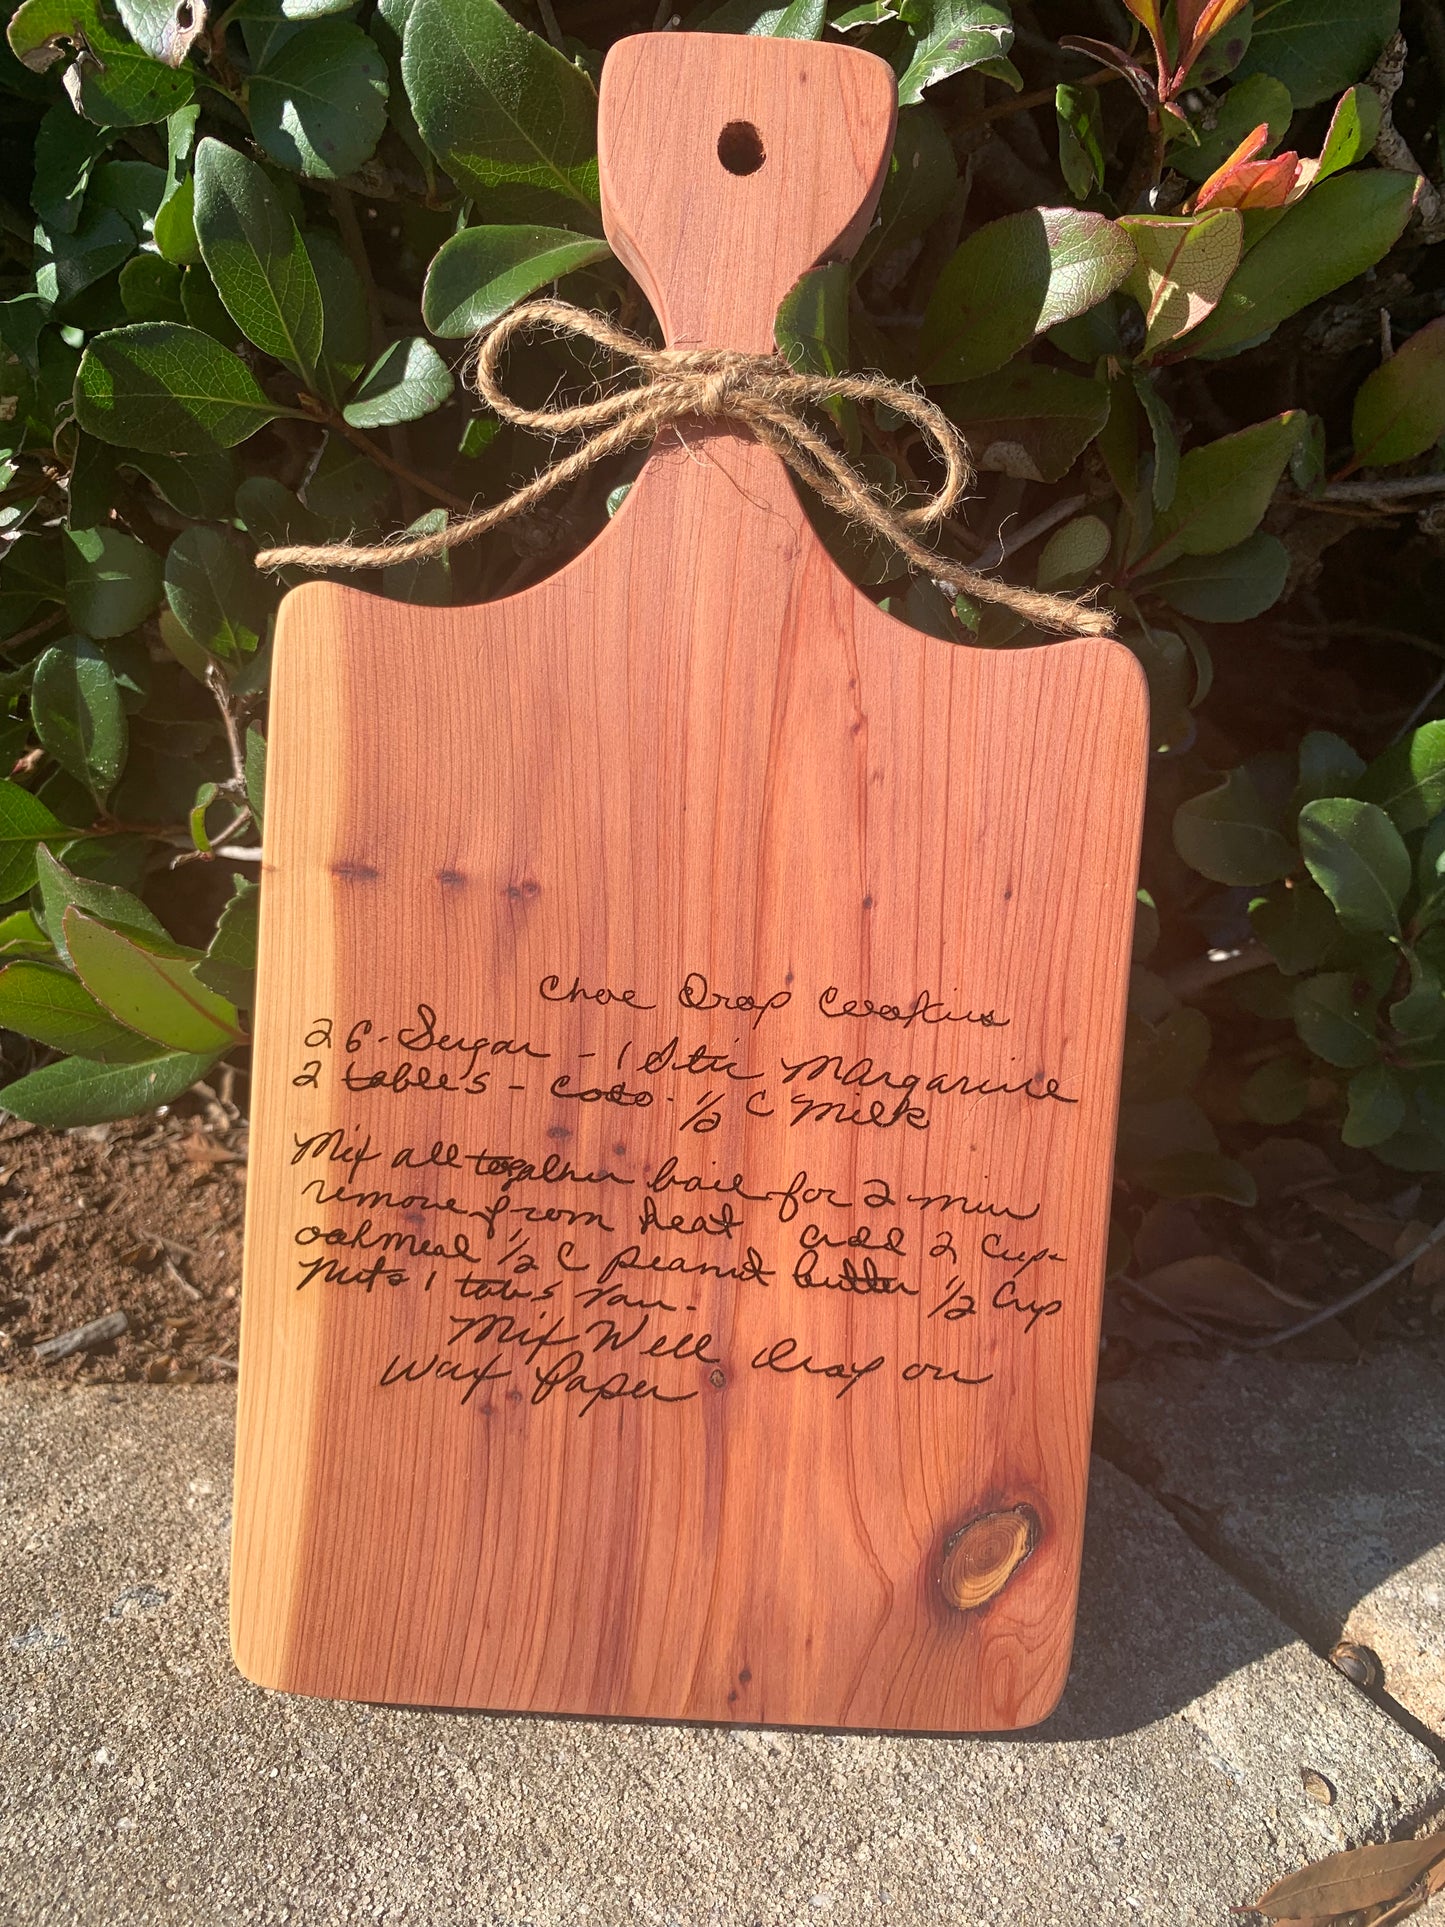 Choc Drop Cookies
2 C. Sugar - 1 Stic Margarine
2 tables - Coco - 1/2 C Milk
Mix all together boil for 2 min
remove from heat add 2 Cups
oakmeal 1/2 C peanut butter 1/2 Cup
Nuts 1 tabs Van.
Mix Well drop on
Wax Paper